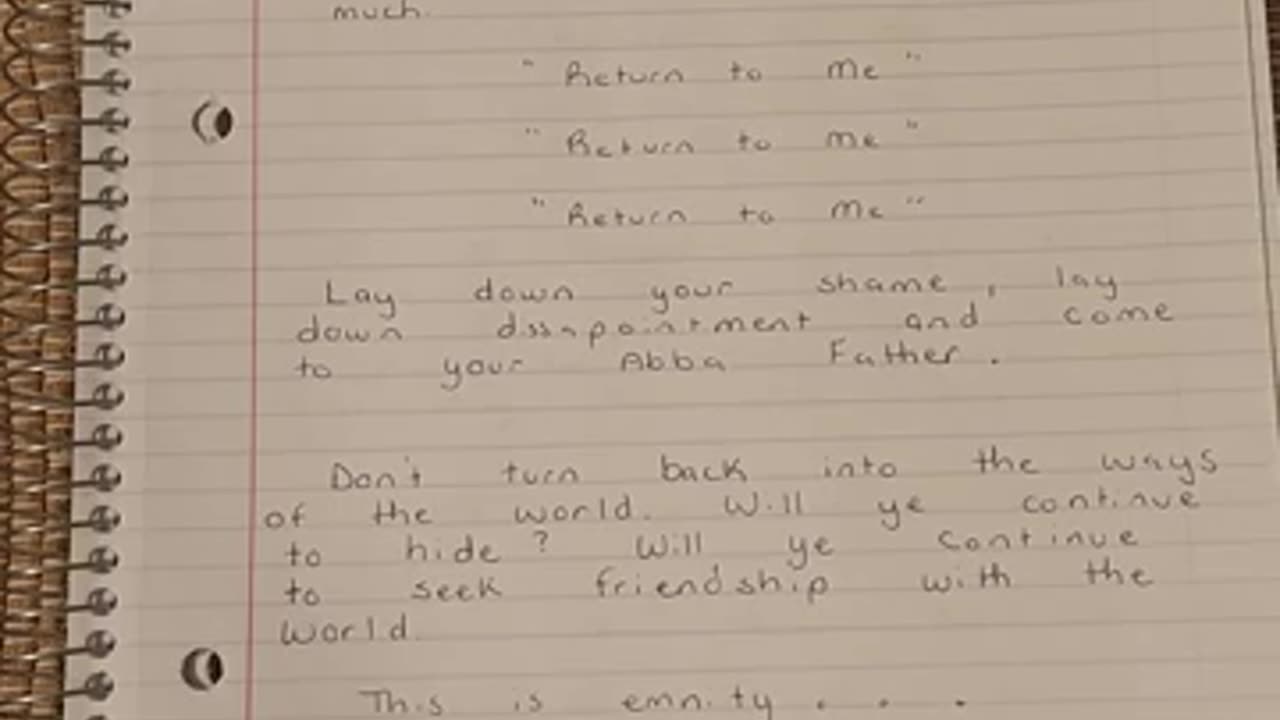 much.
" Return to me "
" Return to me "
" Return to me "
Lay down your shame, lay
down dssapointment and come
to your Abba Father.
Don't turn back into the ways
of the world. Will ye continue
to hide? Will ye continue
to seek friendship with the
world.
This is emnity . . .